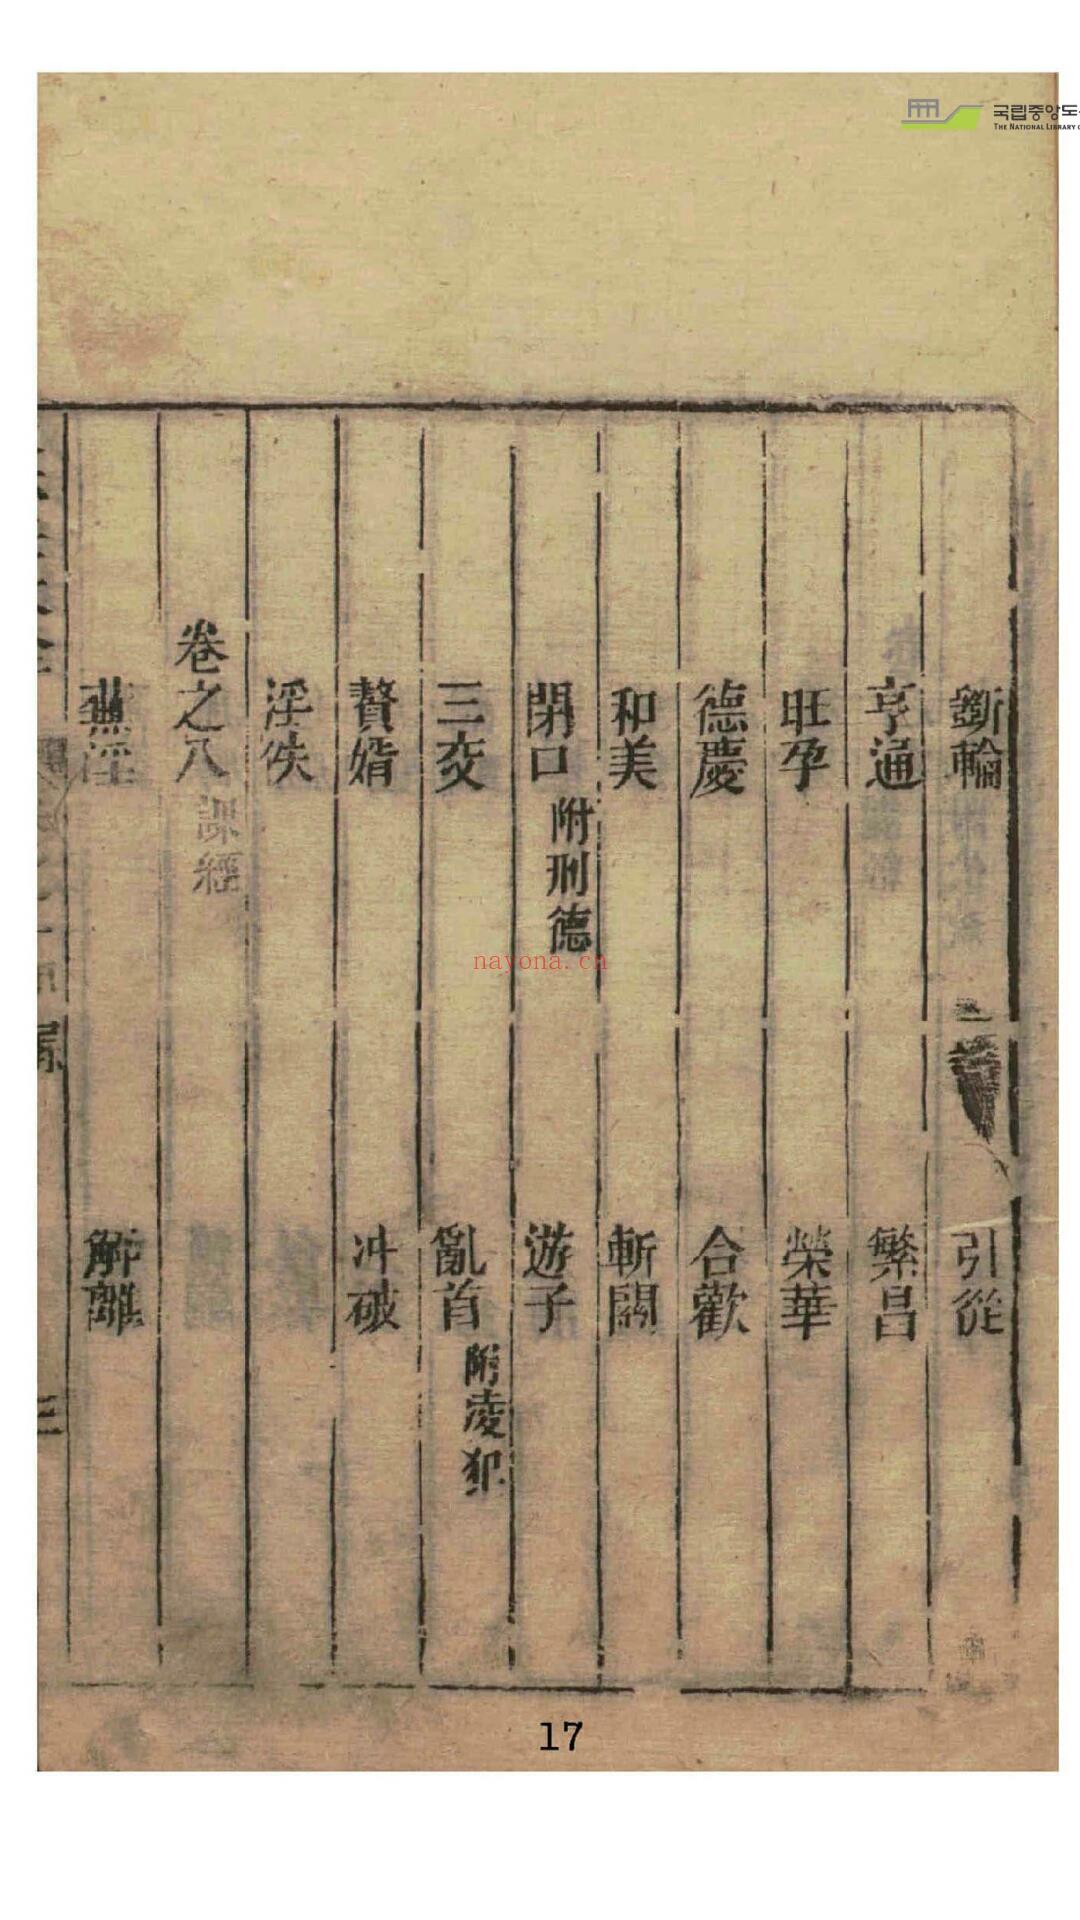 국립중앙도
THE NATIONAL LIBRARY
斲輪 引從
亨通 繁昌
旺孕 榮華
德慶 合歡
和美 斬關
閉口 附刑德 遊子
三交 亂首 附凌犯
贅婿 冲破
淫佚
卷之八 課經
蕪淫 解離
三
nayona.cn
17